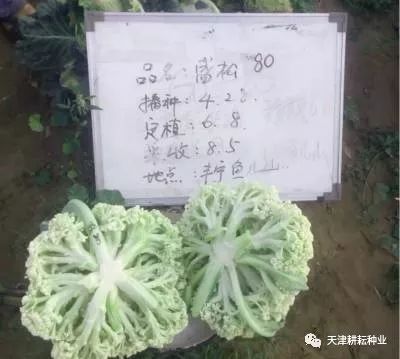 品名：盛松 80
播种：4.28.
定植：6.8.
采收：8.5
地点：丰宁
天津耕耘种业